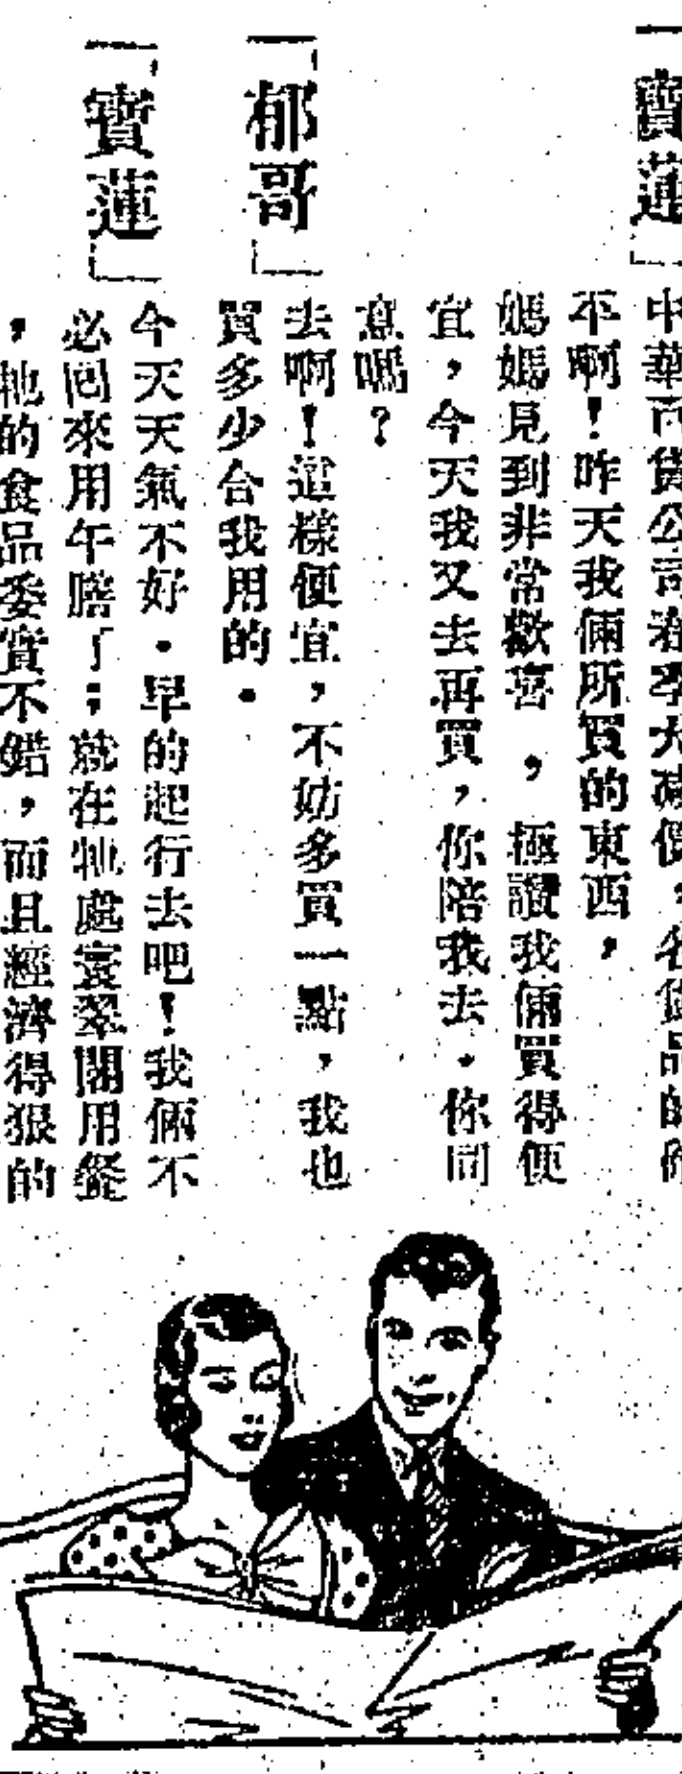 「寶蓮」
中華百貨公司春季大減價，各貨品的價
不啊！昨天我倆所買的東西，
媽媽見到非常歡喜，極讚我倆買得便
宜，今天我又去再買，你陪我去．你同
意嗎？
「郁哥」
去啊！這樣便宜，不妨多買一點，我也
買多少合我用的．
「寶蓮」
今天天氣不好．早的起行去吧！我倆不
必回來用午膳了；就在牠處寰翠閣用餐
，牠的食品委實不錯，而且經濟得狠的